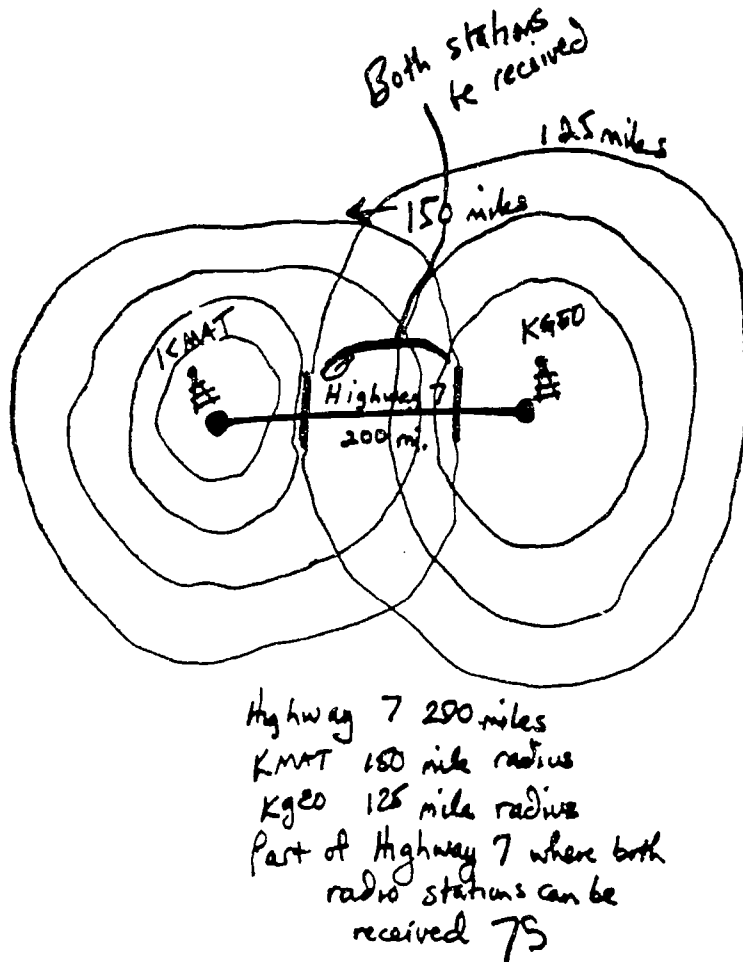 Both stations
be received
125 miles
150 miles
KMAT
KGEO
Highway 7
200 mi.
Highway 7 200 miles
KMAT 150 mile radius
KgeO 125 mile radius
Part of Highway 7 where both
radio stations can be
received 75